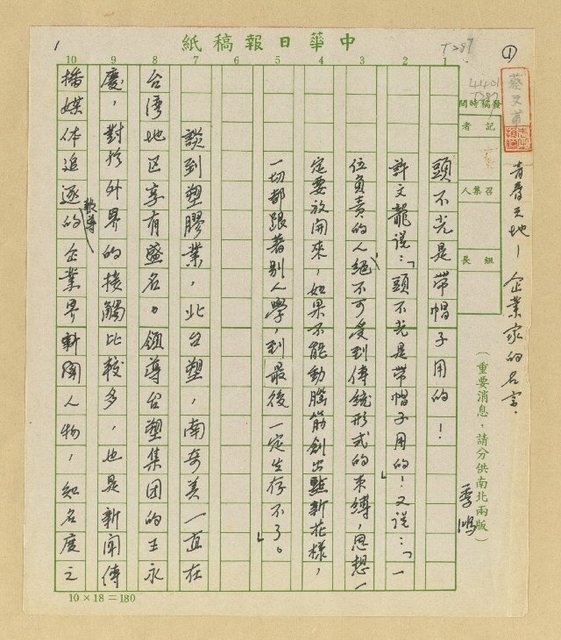 中華日報稿紙
T287
①
1
44401
T287
蔡文甫
發稿時間
記者
召集人
組長
（重要消息，請分供南北兩版）
青春天地—企業家的名字．
季鴻
1 2 3 4 5 6 7 8 9 10
頭不光是帶帽子用的！
許文龍說：「頭不光是帶帽子用的！」又說：「一
位負責的人，絕不可受到傳統形式的束縛，思想一
定要放開來，如果不能動腦筋創出點新花樣，
一切都跟著別人學，到最後一定生存不了。」
談到塑膠業，北台塑，南奇美一直在
台灣地区享有盛名。領導台塑集团的王永
慶，對於外界的接觸比較多，也是新闻傳
播媒体追逐報導的企業界新闻人物，知名度之
10×18＝180